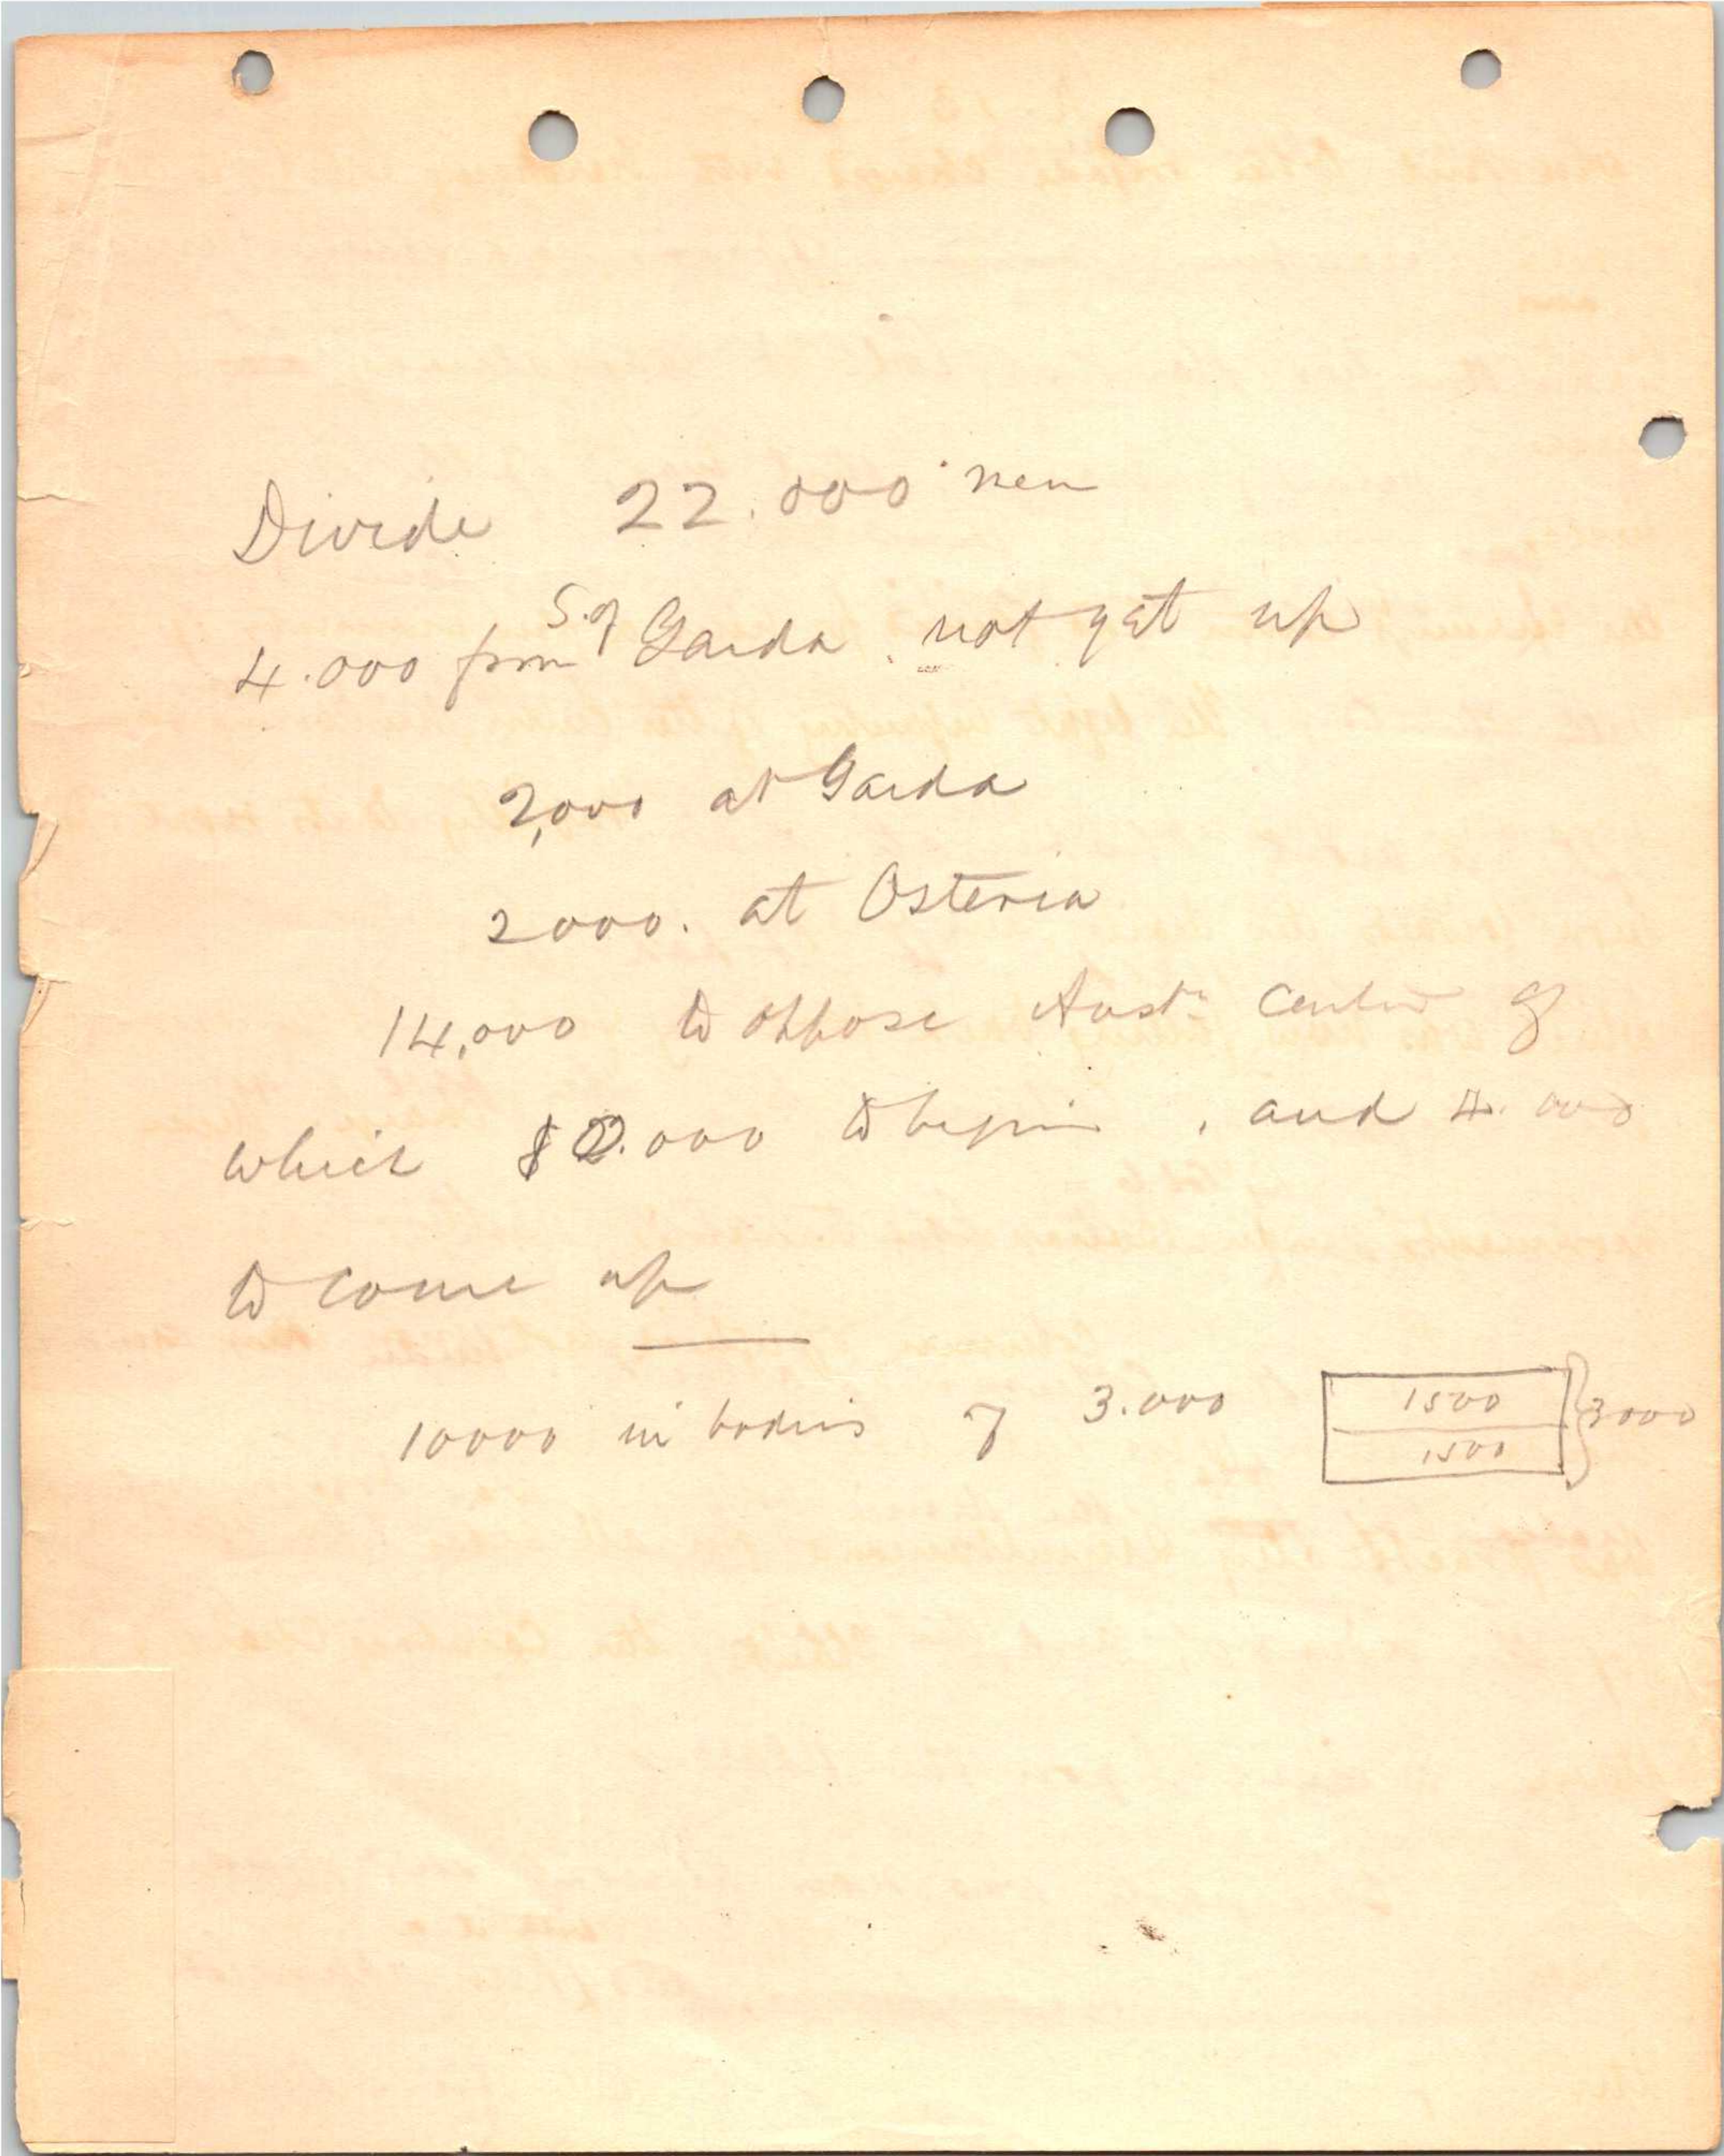 Divide 22.000 men
4.000 from S. of Garda not yet up
2,000 at Garda
2000. at Osteria
14,000 to oppose Aust. Center of
which 10.000 to begin, and 4.000
to come up
10000 in bodies of 3.000 1500 1500 3000